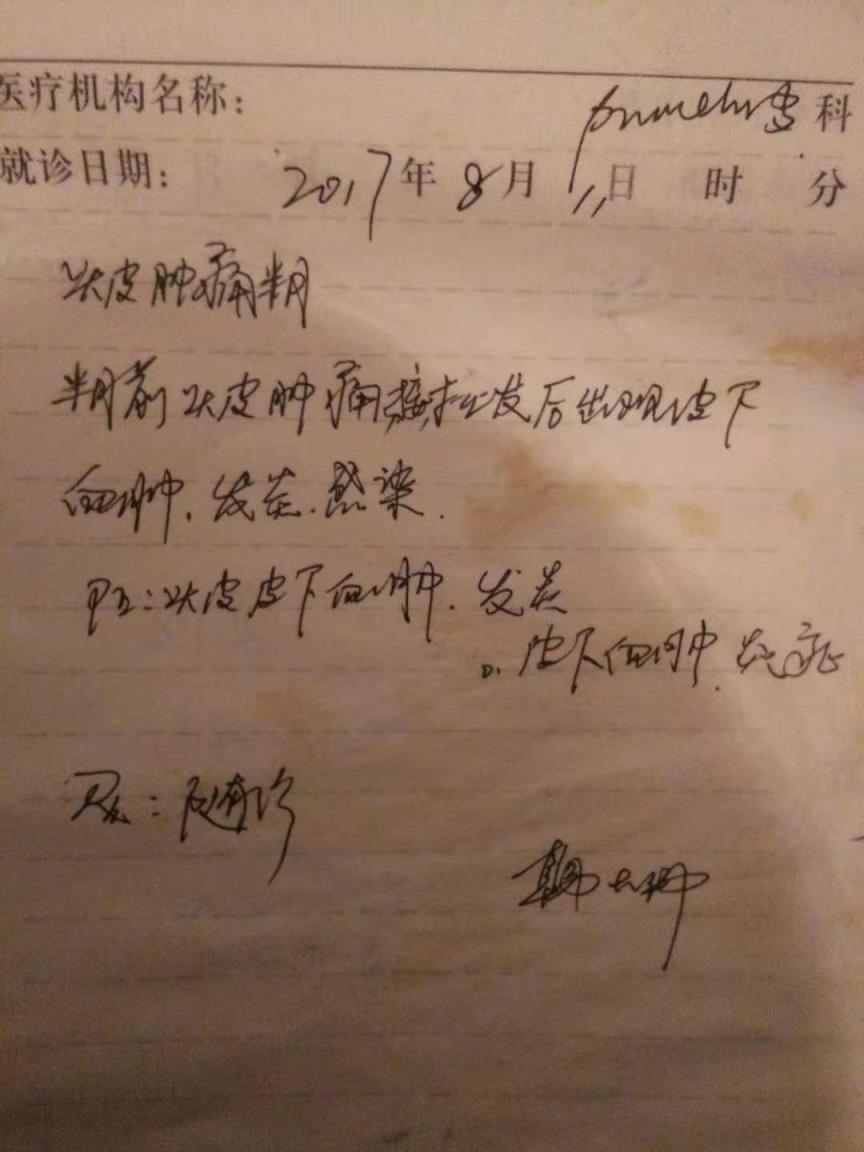 医疗机构名称: 科
就诊日期: 2017年8月11日 时 分
头皮肿痛半月
半月前头皮肿痛,接 发后出现皮下
血肿.发炎.感染.
PE:头皮皮下血肿.发炎
D.皮下血肿.炎症